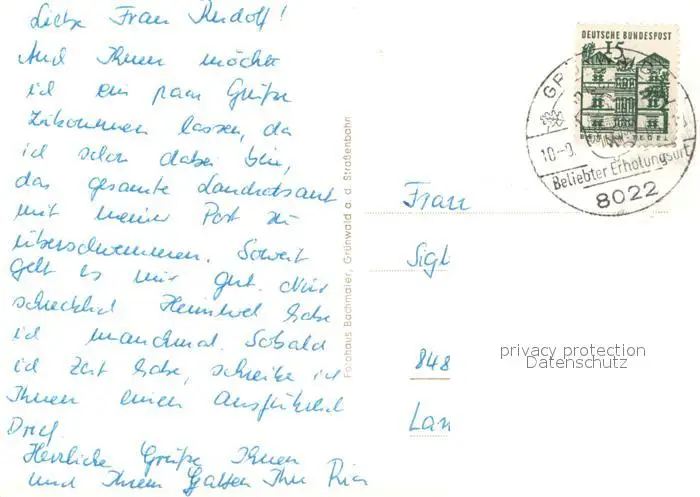 Liebe Frau Rudolf!
Auch Ihnen möchte
ich ein paar Grüße
zukommen lassen, da
ich schon dabei bin,
das gesamte Landratsamt
mit meiner Post zu
überschwemmen. Soweit
geht es mir gut. Nur
schrecklich Heimweh habe
ich manchmal. Sobald
ich Zeit habe, schreibe ich
Ihnen einen ausführlich
Brief.
Herzliche Grüße Ihnen
und Ihrem Gatten Ihre
Fotohaus Bachmaier, Grünwald a. d. Straßenbahn
DEUTSCHE BUNDESPOST
15
BERLIN TEGEL
10-9
Beliebter Erholungsort
8022
Frau
Sigl
848
Lan
privacy protection
Datenschutz